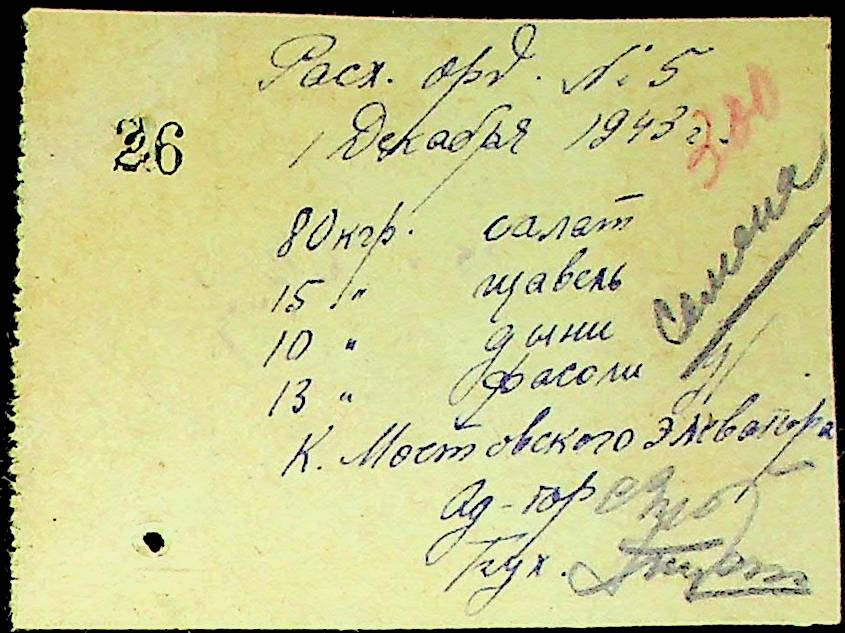 Расх. орд. № 5
300
26
1 Декабря 1943 г.
80 кгр. салат
15 " щавель
10 " дыни
13 " фасоли
Семена
К. Мостовского Элеватора
Ад-тор
Бух.